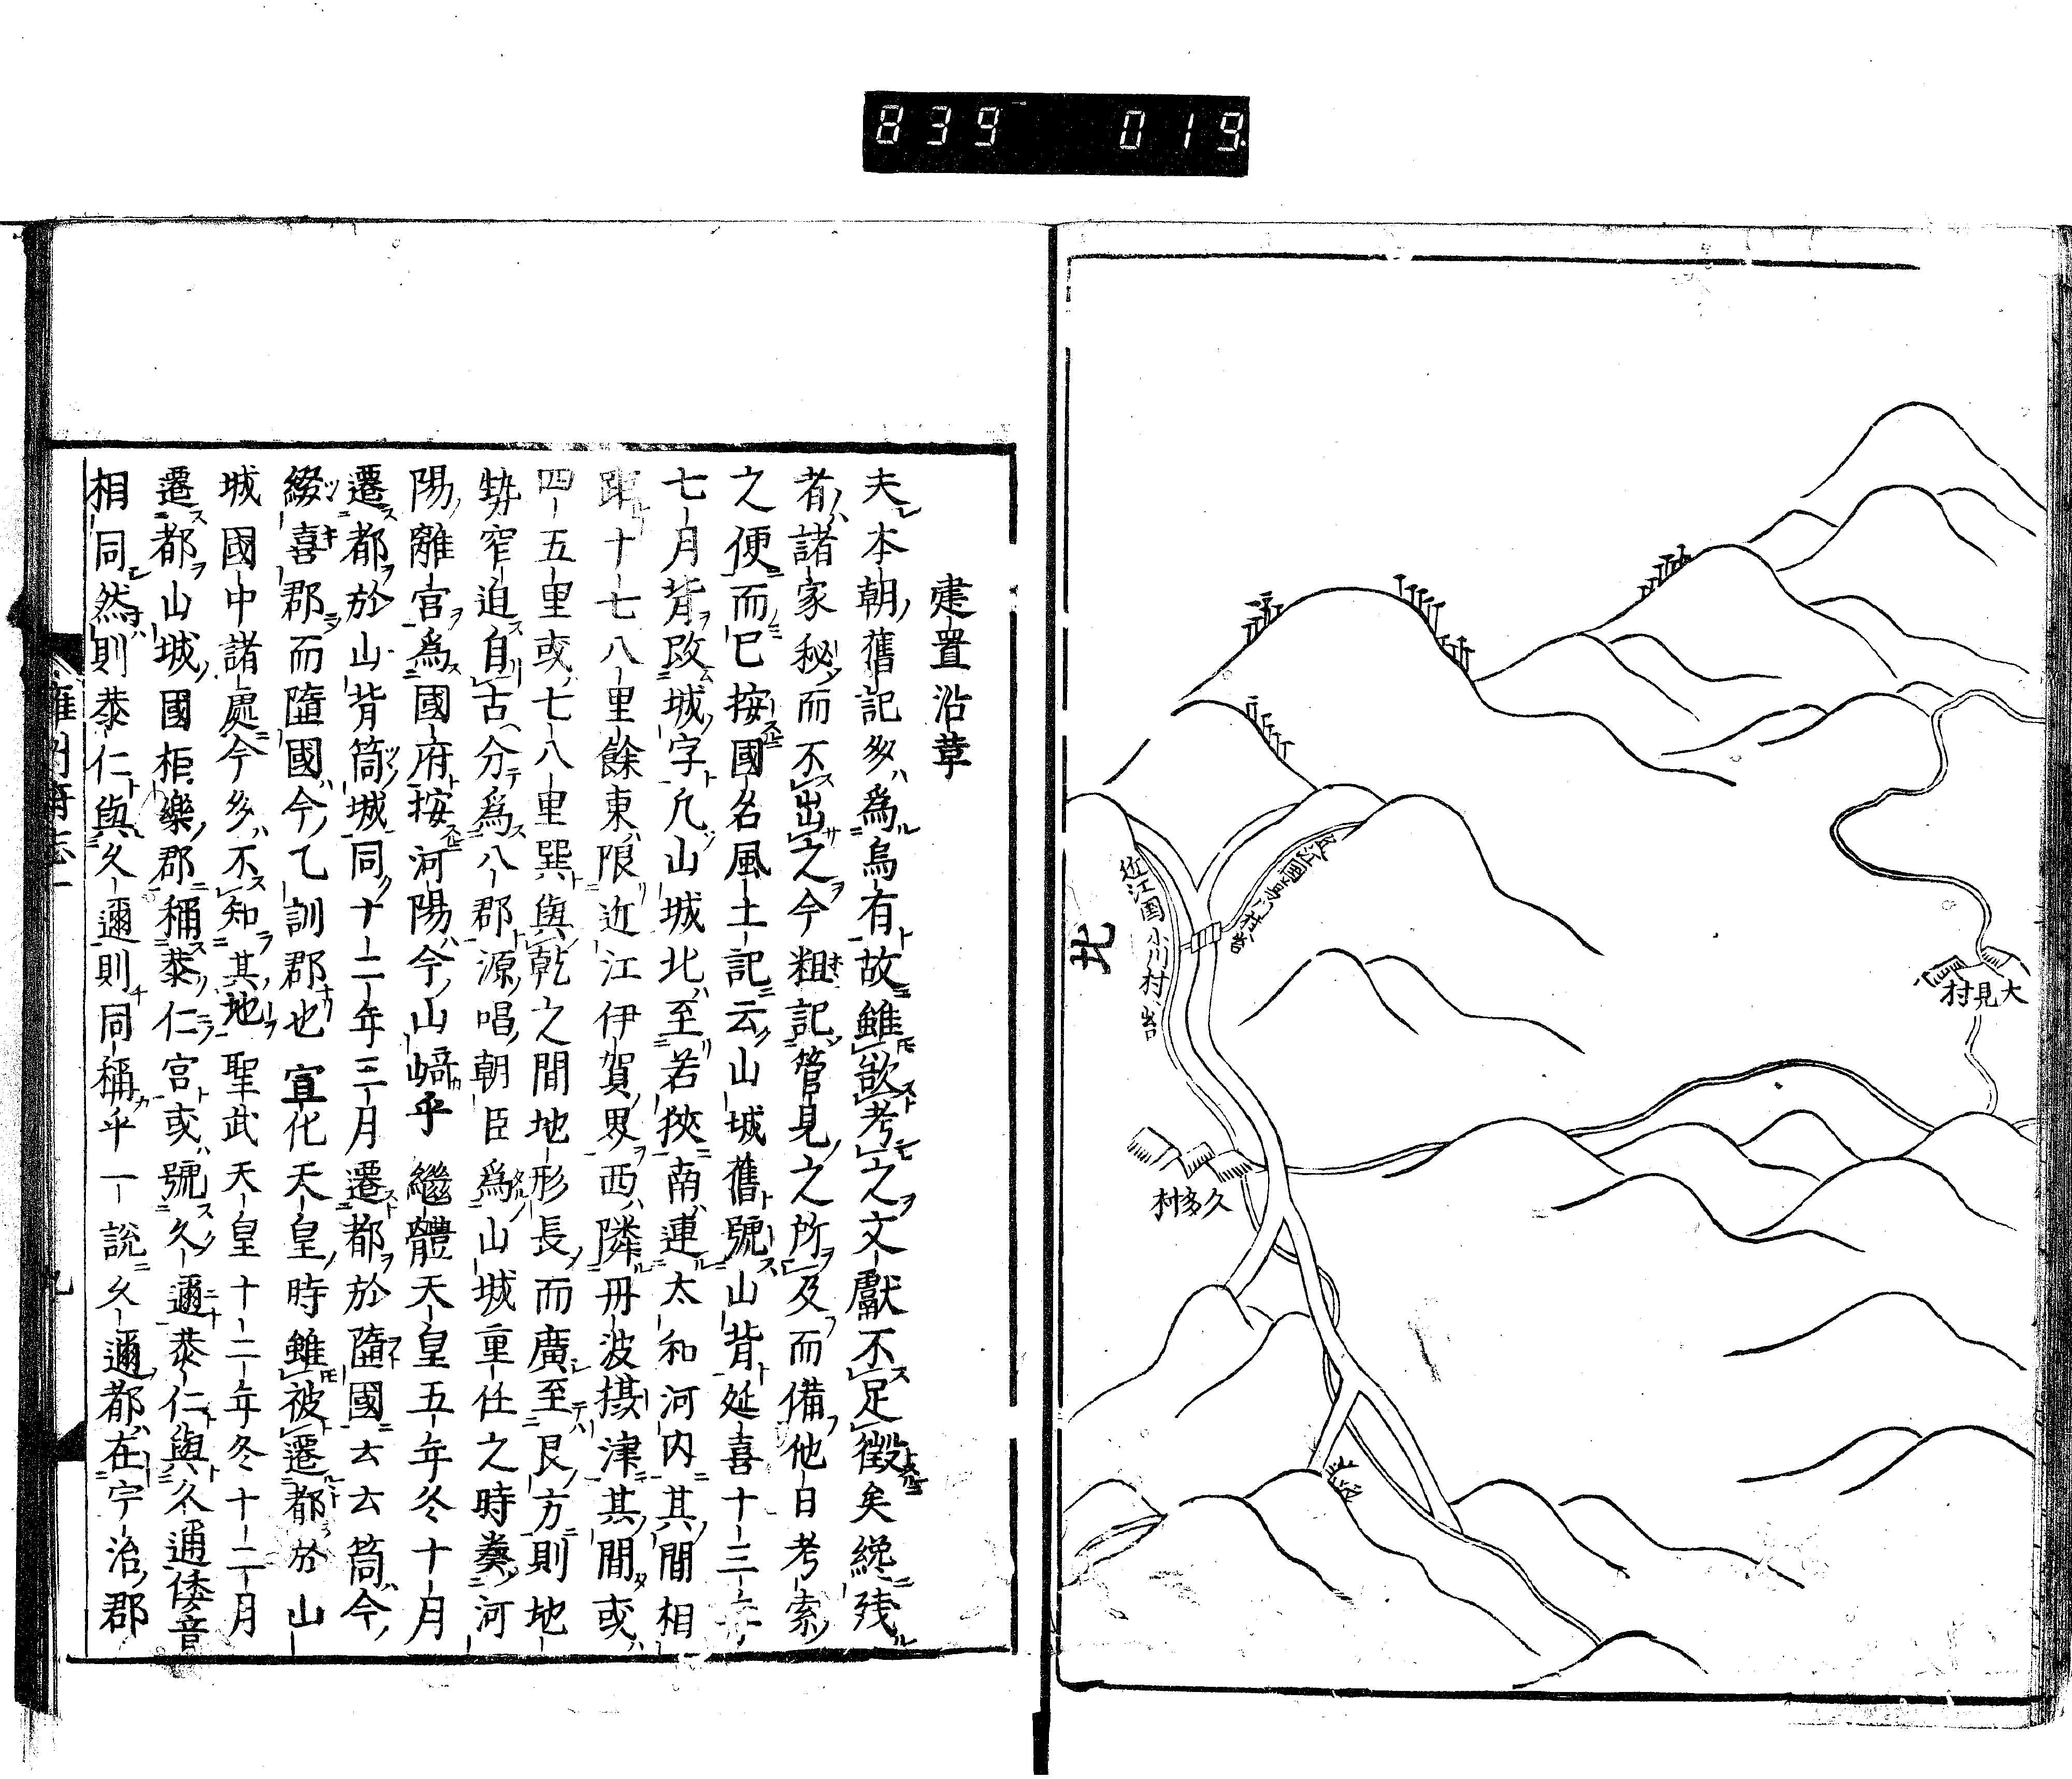 839 019
北
近江国小川村ヘ出
大見村
久多村
建置沿革
夫本朝舊記多爲烏有故雖欲考之文獻不足徵矣纔残
者諸家秘而不出之今粗記管見之所及而備他日考索
之便而已按國名風土記云山城舊號山背延喜十三年
七月背改城字凢山城北至若狹南連太和河内其間相
距十七八里餘東限近江伊賀界西隣丹波摂津其間或
四五里或七八里巽與乾之間地形長而廣至艮方則地
勢窄迫自古分爲八郡源唱朝臣爲山城重任之時奏河
陽離宮爲國府按河陽今山﨑乎 繼體天皇五年冬十月
遷都於山背筒城同十二年三月遷都於隨國云云筒今
綴喜郡而隨國今乙訓郡也 宣化天皇時雖被遷都於山
城國中諸處今多不知其地 聖武天皇十二年冬十二月
遷都山城國柜樂郡稱恭仁宮或號久邇恭仁與久邇倭音
相同然則恭仁與久邇則同稱乎一説久邇都在宇治郡
雍州府志一
九